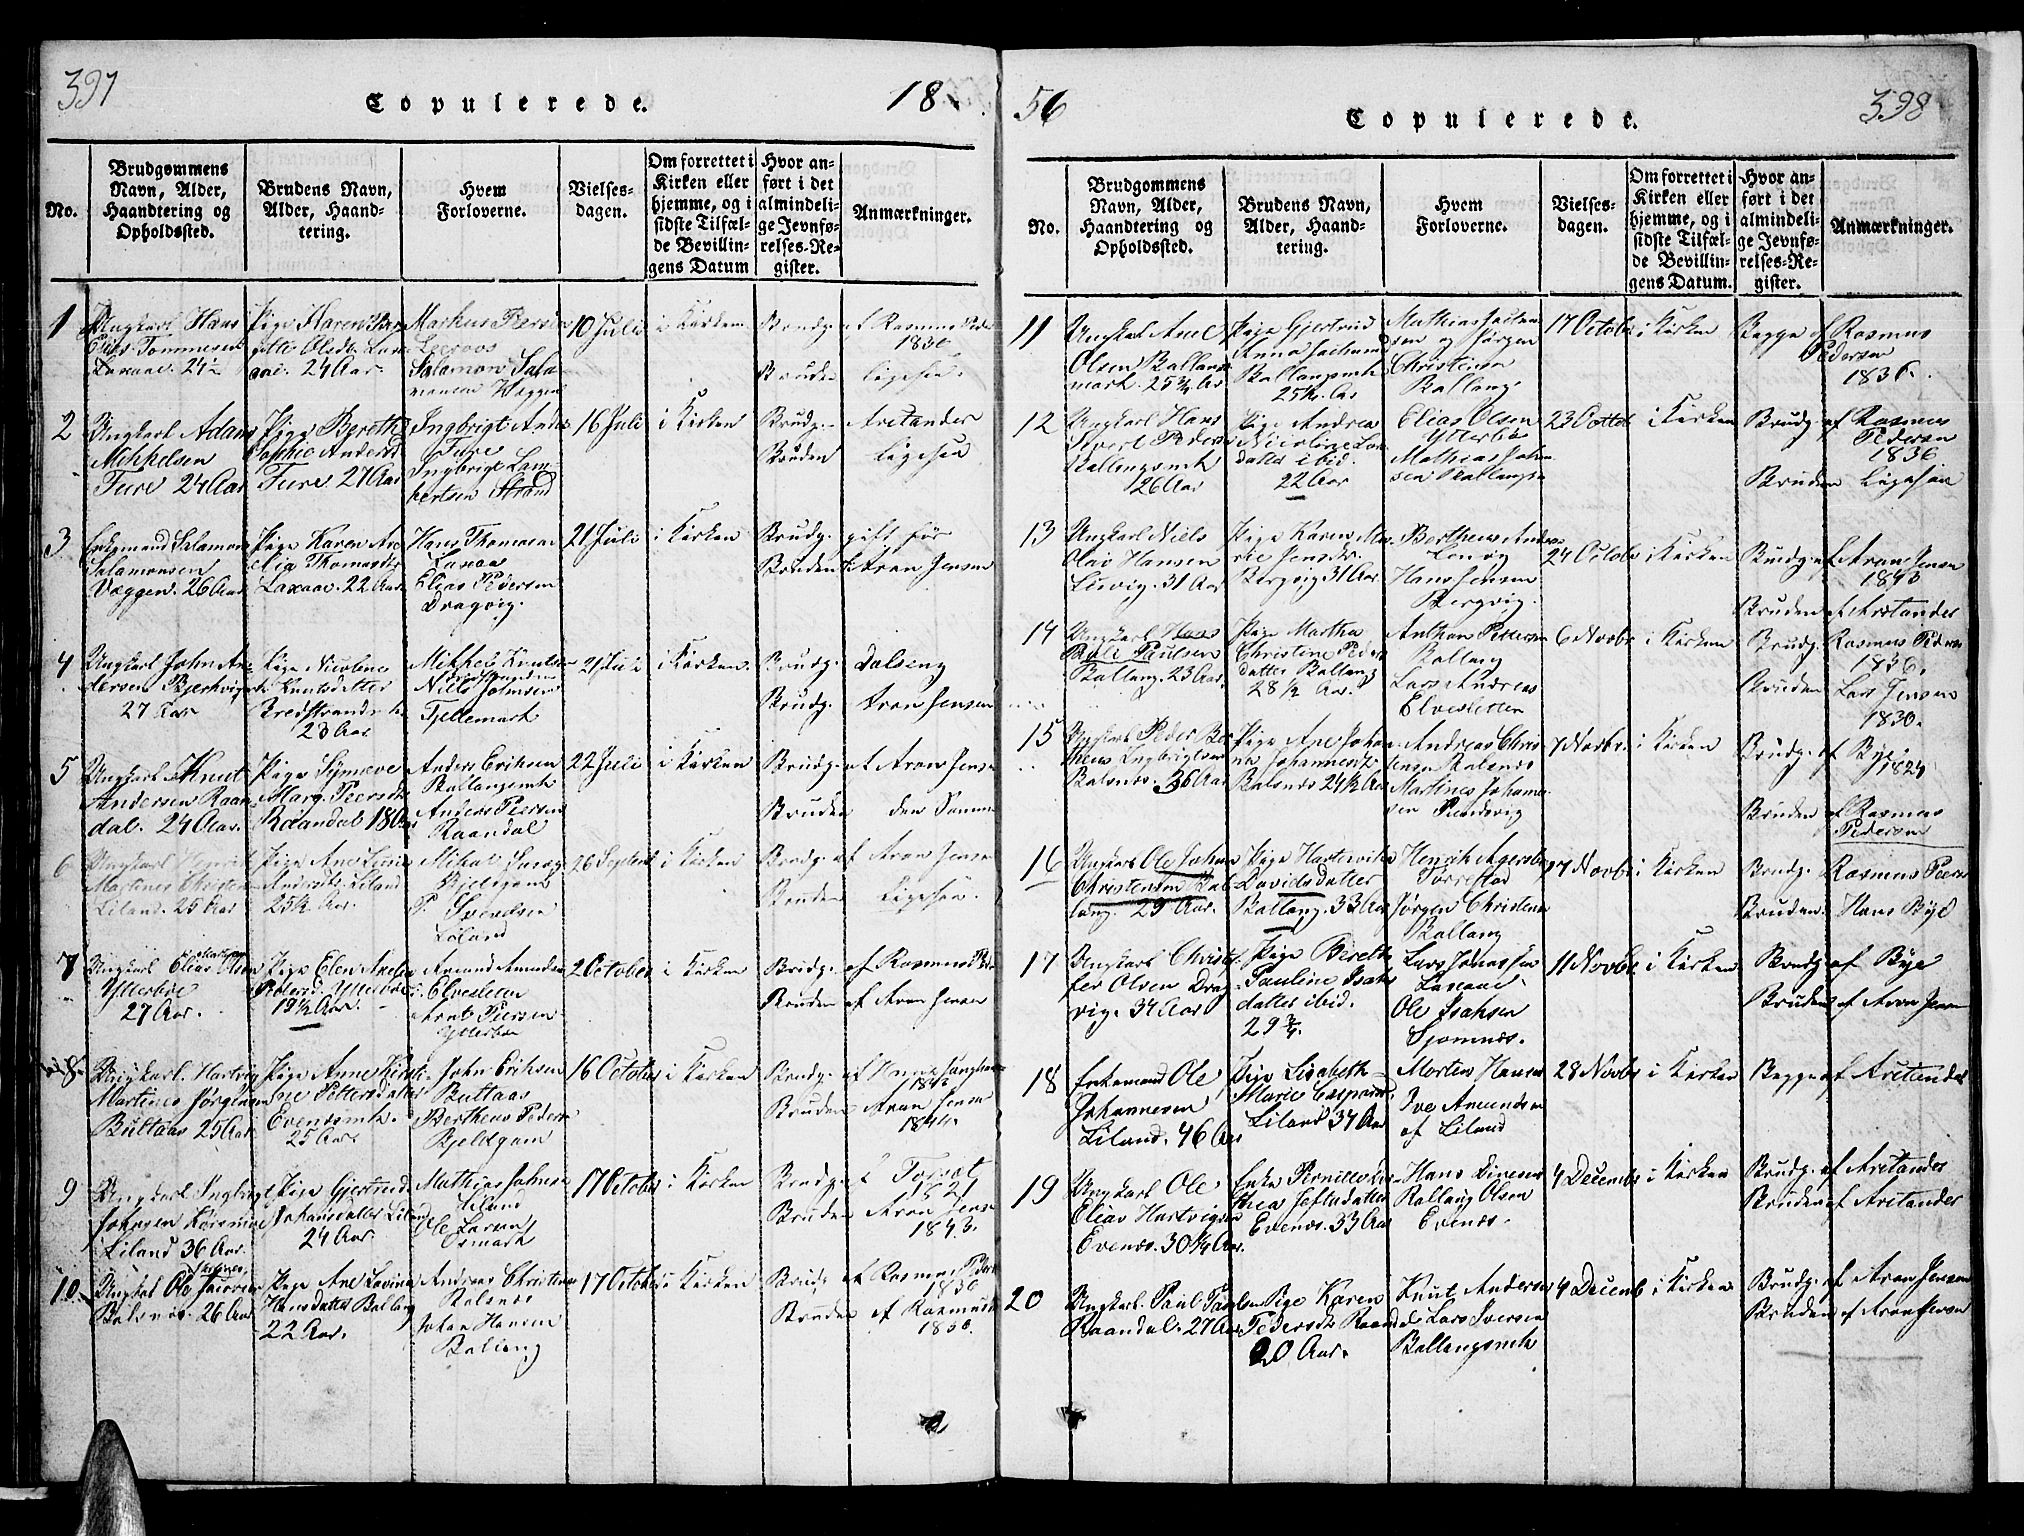 397
Copulerede.
18
No.
Brudgommens
Navn, Alder,
Haandtering og
Opholdssted.
Brudens Navn,
Alder, Haand-
tering.
Hvem
Forloverne.
Vielses-
dagen.
Om forrettet i
Kirken eller
hjemme, og i
sidste Tilfæl-
de Bevillin-
gens Datum
Hvor an-
ført i det
almindeli-
ge Jevnfø-
relses-Re-
gister.
Anmærkninger.
1
Ungkarl Hans
Tommesen
Laxaae. 24½
Pige Karen
Olsdt. Lax-
aae. 24 Aar.
Markus Peersen
Leeraas
Salamon Sala-
monsen Væggen
10 Juli
i Kirken
Brudg. af Rasmus Peder
1836
Bruden ligesaa.
2
Ungkarl Adam
Mikkelsen
Ture 24 Aar
Pige Bereth
Sophie Andersd
Ture 21 Aar
Ingbrigt Anders
Ture
Ingbrigt Lam-
bertsen Strand
16 Juli
i Kirken
Brudg. Aretander
Bruden ligesaa
3
Enkemand Salamon
Salamonsen
Væggen. 26 Aar
Pige Karen An-
Thomasdtr
Laxaae. 22 Aar
Hans Thomesen
Laxaa
Elias Pedersen
Dragvig.
21 Juli
i Kirken
Brudg. gift før
Bruden Aron Jensen
4
Ungkarl John An-
dersen Bjerkvig
27 Aar
Pige Nicoline
Knutsdatter
Bredstrand
23 Aar
Mikkel Knutsen
Bredstranden
Nils Johnsen
Fjellemark
21 Juli
i Kirken.
Brudg. Dalseng
Brudg. Aron Jensen
5
Ungkarl Knut
Andersen Raan-
dal. 24 Aar.
Pige Symæve
Marg. Peersdt
Raandal 18 Aar
Anders Eriksen
Ballangsmk
Anders Peersen
Raandal
22 Juli
i Kirken
Brudg. af Aron Jensen
Bruden den Samme
6
Ungkarl Henrik
Martines Christen-
Liland. 25 Aar
Pige Ane
Andersdtr. Liland
25½ Aar.
Mikal
Bjeldgam
P. Svendsen
Liland
26 Septemb
i Kirken
Brudg. af Aron Jensen
Bruden ligesaa.
7
Ungkarl Elias Olsen
Ytterbøe
27 Aar.
Pige Elen
Pedersd. Ytterbøe
19½ Aar.
Amund Amundsen
Elvesletten
Arnt Peersen
Ytterbøe
2 October
i Kirken
Brudg. af Rasmus Peder
Bruden af Aron Jensen
8.
Ungkarl. Hartvig
Martines Jørgensen
Bultaas 25 Aar
Pige Anne Kirsti-
ne Pettersdatter
Evendsmk.
25 Aar.
John Eriksen
Bultaas
Bertheus Peders
Bjeldgam
16 October
i Kirken
Brudg. af
Bruden Aron Jensen
1844.
9
Ungkarl Ingbrigt
Johnsen
Liland 36 Aar.
Pige Gjertrud
Johansdatter Liland
24 Aar
Mathias Johnsen
Liland
Ole Larsen
Osmark
17 October
i Kirken
Brudg. f
1821
Bruden Aron Jensen
1843.
10
Ungkal Ole
Balsnes. 26 Aar
Pige Ane Lovine
Hansdatter Balang
22 Aar.
Andreas Christense
Balsnes
Johan Hansen
Balang
17 October
i Kirken
Brudg af Rasmus Peder
1836
Bruden af Rasmus
1836.
56
Copulerede.
398
No.
Brudgommens
Navn, Alder,
Haandtering og
Opholdssted.
Brudens Navn,
Alder, Haand-
tering.
Hvem
Forloverne.
Vielses-
dagen.
Om forrettet i
Kirken eller
hjemme, og i
sidste Tilfæl-
de Bevillin-
gens Datum.
Hvor an-
ført i det
almindeli-
ge Jevnfø-
relses-Re-
gister.
Anmærkninger.
11
Ungkal
Olsen Ballangs-
mark. 25¾ Ar
Pige Gjertrud
Anna
Ballangsmk
25½. Ar
Mathias
sen og Jørgen
Christensen
Ballang.
17 Octobr
i Kirken
Begge af Rasmus
Pedersen
1836.
12
Ungkarl Hans
Sivert Peders
Ballangsmk
26 Aar
Pige Andrea
Nicoline
datter ibid.
22 Aar
Elias Olsen
Ytterbøe
Mathias John-
sen Ballangsm
23 Octob
i Kirken
Brudg. af Rasmus
Pedersen
1836
Bruden Ligesaa
13
Ungkarl Niels
Olai Hansen
Liavig. 31 Aar
Pige Karen Ma-
rie Jensdr.
Bergvig 31 Aar
Bertheus Anders
Hans Jensen
Bergvig.
24 Octob
i Kirken
Brudg. af Aron Jensen
1843
Bruden af Aretander
14
Ungkarl Hans
Paulsen
Ballang. 23 Aar.
Pige Martha
Christine Peder
datter Ballang
28½ Aar.
Anthon Pettersen
Ballang
Lars Andreas
Elvesletten
6 Novbr
i Kirken
Brudg. Rasmus Peders
1836.
Bruden Lars Jensen
1830.
15
Ungkarl Peder Ber-
theus Ingbrigtsen
Balsnes. 36 Aar
Pige Ane Johan-
na Johannesdt
Balsnes 24½ Aar
Andreas Chris-
tensen Balsnes
Martines Johanne-
sen Sandvig
7 Novbr.
i Kirken
Brudg. af Bye
1824
Bruden af Rasmus
Pedersen
16
Ungkarl Ole Johan
Christensen Bal-
lang. 29 Aar.
Pige Hartevika
Davidsdatter
Ballang. 33 Aar
Henrik Agersborg
Torrestad
Jørgen Christense
Ballang
7 Novbr
i Kirken
Brudg. Rasmus Peers
Bruden. Hans Bye
17
Ungkarl Christof-
fer Olsen Drag-
vig. 34 Aar
Pige Bereth
Pauline Isaks
datter ibid.
29¾.
Lars Johnsen
Laxaae.
Ole Isaksen
Sjomnes.
11 Novbr
i Kirken
Brudg af Bye
Bruden af Aron Jensen
18
Enkemand Ole
Johannesen
Liland. 46 Aar
Pige Lisabeth
Marie Caspersd
Liland 34 Aar
Morten Hansen
Ive Amundsen
af Liland
28 Novbr
i Kirken
Begge af Aretander
19
Ungkarl Ole
Elias Hartvigsen
Evenes. 30¼ Aar.
Enke Pernille Do-
thea Jeftedatter
Evenes. 33 Aar
Hans Dinesen
Ballang Olsen
Evenes.
4 Decembr
i Kirken
Brudg. af Aretander
Bruden af Aretander
20
Ungkarl. Paul Paulsen
Raandal. 27 Aar
Pige Karen
Pedersdt Raandal
20 Aar.
Knut Andersen
Lars Iversen
Ballangsmk
4 Decemb
i Kirken
Brudg. af Aron Jensen
Bruden af Aron Jensen